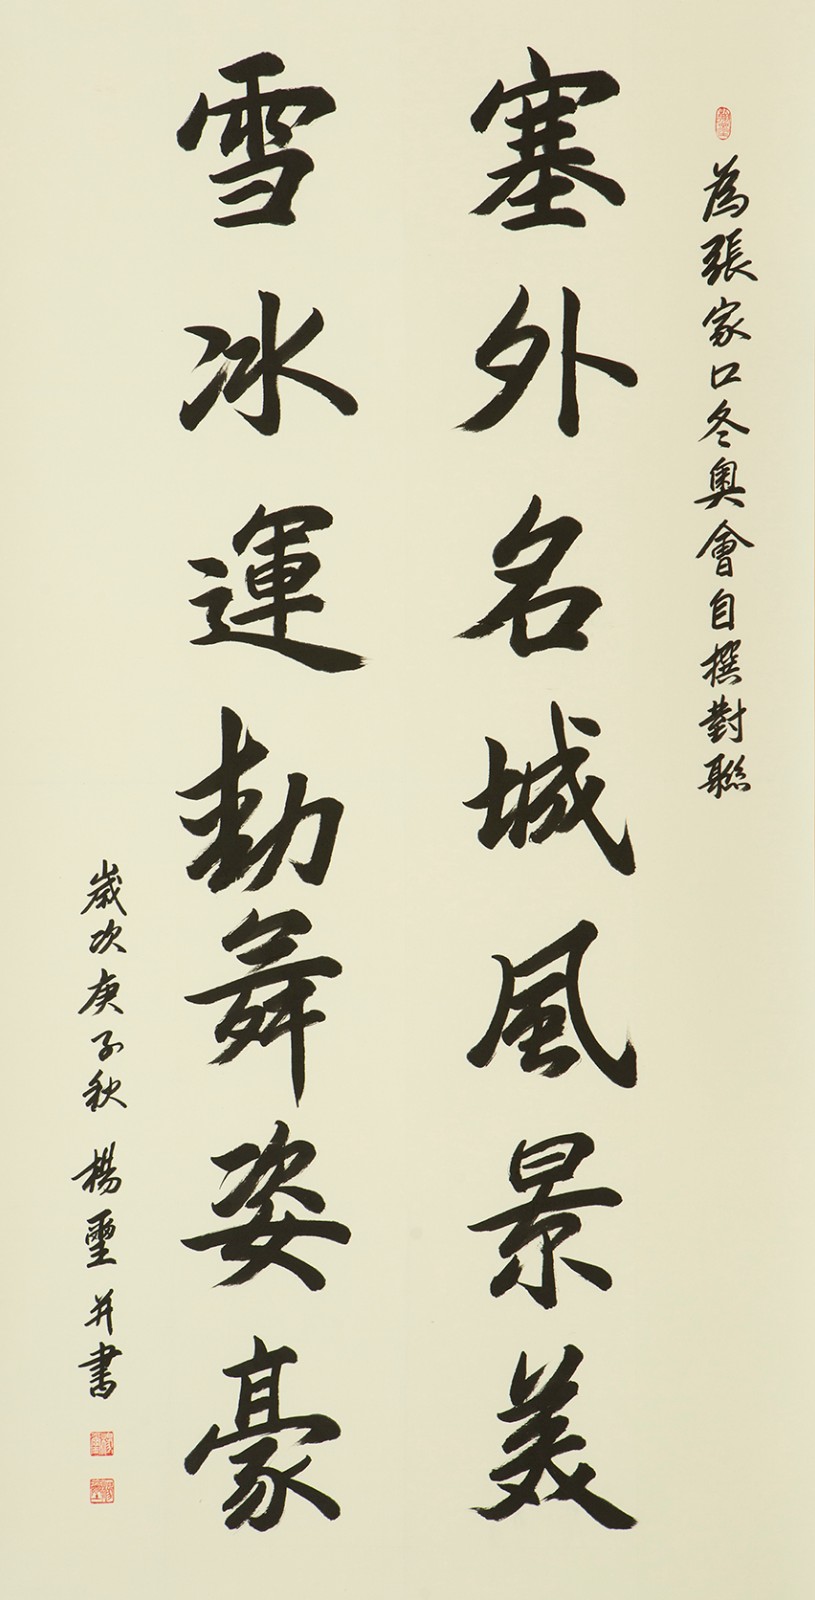 為張家口冬奧會自撰對聯
塞外名城風景美
雪冰運動舞姿豪
歲次庚子秋 楊璽并書